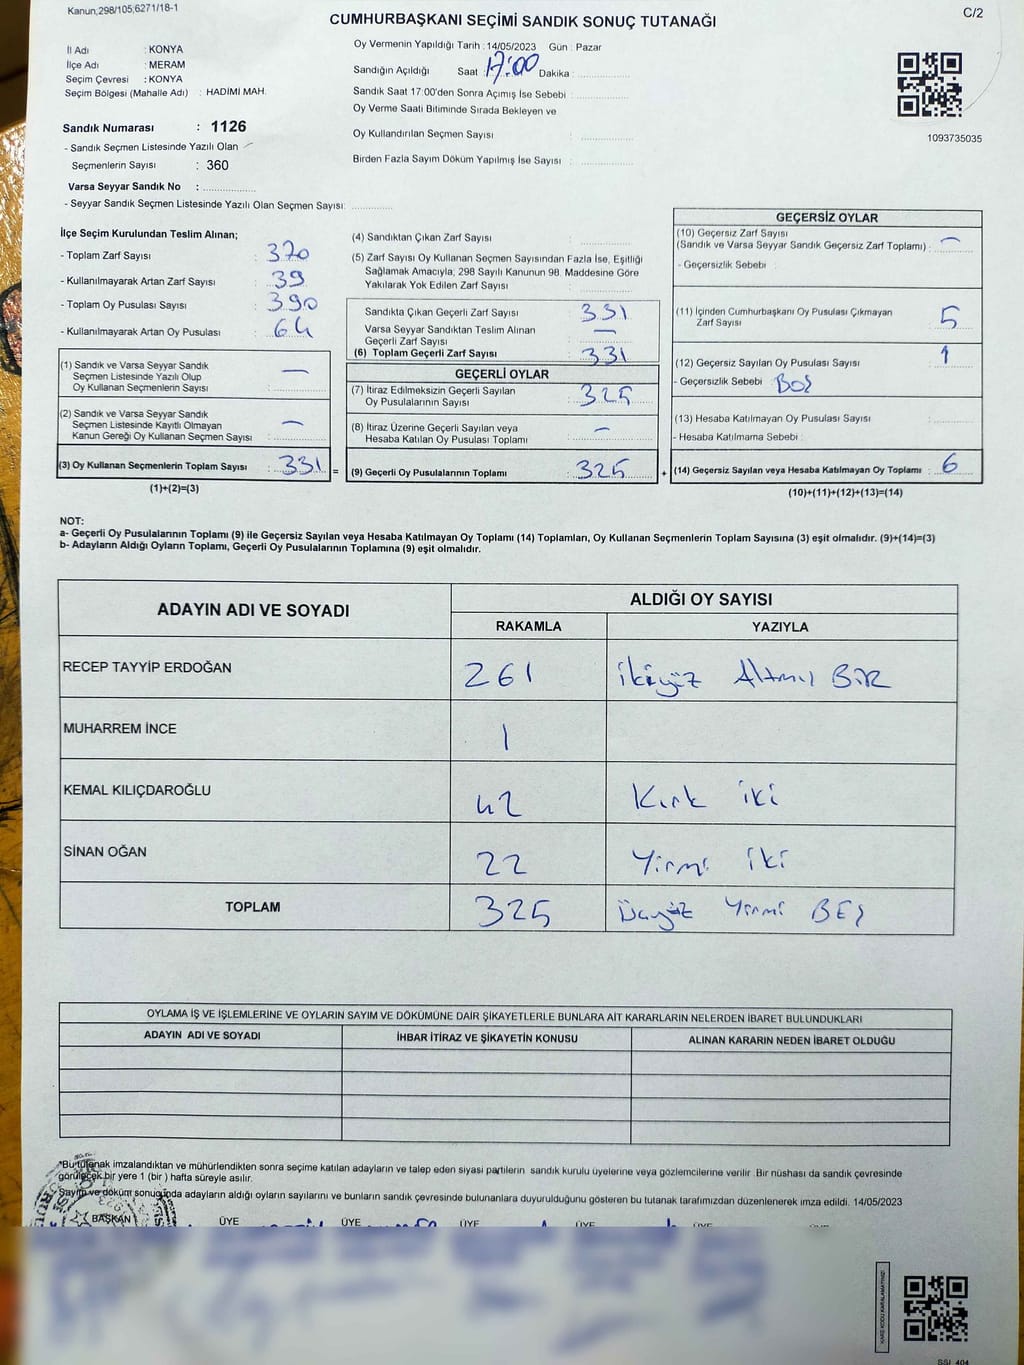 Kanun;298/105;6271/18-1
C/2
CUMHURBAŞKANI SEÇİMİ SANDIK SONUÇ TUTANAĞI
İl Adı : KONYA
İlçe Adı : MERAM
Seçim Çevresi : KONYA
Seçim Bölgesi (Mahalle Adı) : HADİMİ MAH.
Oy Vermenin Yapıldığı Tarih : 14/05/2023 Gün : Pazar
Sandığın Açıldığı Saat : 17:00 Dakika :
Sandık Saat 17:00'den Sonra Açımış İse Sebebi :
Oy Verme Saati Bitiminde Sırada Bekleyen ve
Oy Kullandırılan Seçmen Sayısı :
Birden Fazla Sayım Döküm Yapılmış İse Sayısı :
1093735035
Sandık Numarası : 1126
- Sandık Seçmen Listesinde Yazılı Olan
Seçmenlerin Sayısı : 360
Varsa Seyyar Sandık No :
- Seyyar Sandık Seçmen Listesinde Yazılı Olan Seçmen Sayısı:
İlçe Seçim Kurulundan Teslim Alınan;
- Toplam Zarf Sayısı : 370
- Kullanılmayarak Artan Zarf Sayısı : 39
- Toplam Oy Pusulası Sayısı : 390
- Kullanılmayarak Artan Oy Pusulası : 64
(1) Sandık ve Varsa Seyyar Sandık
Seçmen Listesinde Yazılı Olup
Oy Kullanan Seçmenlerin Sayısı : —
(2) Sandık ve Varsa Seyyar Sandık
Seçmen Listesinde Kayıtlı Olmayan
Kanun Gereği Oy Kullanan Seçmen Sayısı : —
(3) Oy Kullanan Seçmenlerin Toplam Sayısı : 331 =
(1)+(2)=(3)
(4) Sandıktan Çıkan Zarf Sayısı :
(5) Zarf Sayısı Oy Kullanan Seçmen Sayısından Fazla İse, Eşitliği
Sağlamak Amacıyla; 298 Sayılı Kanunun 98. Maddesine Göre
Yakılarak Yok Edilen Zarf Sayısı :
Sandıkta Çıkan Geçerli Zarf Sayısı : 331
Varsa Seyyar Sandıktan Teslim Alınan
Geçerli Zarf Sayısı : —
(6) Toplam Geçerli Zarf Sayısı : 331
GEÇERLİ OYLAR
(7) İtiraz Edilmeksizin Geçerli Sayılan
Oy Pusulalarının Sayısı : 325
(8) İtiraz Üzerine Geçerli Sayılan veya
Hesaba Katılan Oy Pusulası Toplamı : —
(9) Geçerli Oy Pusulalarının Toplamı : 325 +
GEÇERSİZ OYLAR
(10) Geçersiz Zarf Sayısı
(Sandık ve Varsa Seyyar Sandık Geçersiz Zarf Toplamı) : —
- Geçersizlik Sebebi :
(11) İçinden Cumhurbaşkanı Oy Pusulası Çıkmayan
Zarf Sayısı : 5
(12) Geçersiz Sayılan Oy Pusulası Sayısı : 1
- Geçersizlik Sebebi : BOŞ
(13) Hesaba Katılmayan Oy Pusulası Sayısı :
- Hesaba Katılmama Sebebi :
(14) Geçersiz Sayılan veya Hesaba Katılmayan Oy Toplamı : 6
(10)+(11)+(12)+(13)=(14)
NOT:
a- Geçerli Oy Pusulalarının Toplamı (9) ile Geçersiz Sayılan veya Hesaba Katılmayan Oy Toplamı (14) Toplamları, Oy Kullanan Seçmenlerin Toplam Sayısına (3) eşit olmalıdır. (9)+(14)=(3)
b- Adayların Aldığı Oyların Toplamı, Geçerli Oy Pusulalarının Toplamına (9) eşit olmalıdır.
ADAYIN ADI VE SOYADI
ALDIĞI OY SAYISI
RAKAMLA YAZIYLA
RECEP TAYYİP ERDOĞAN 261 İkiyüz Altmış BİR
MUHARREM İNCE 1
KEMAL KILIÇDAROĞLU 42 Kırk iki
SİNAN OĞAN 22 Yirmi iki
TOPLAM 325 Üçyüz Yirmi BEŞ
OYLAMA İŞ VE İŞLEMLERİNE VE OYLARIN SAYIM VE DÖKÜMÜNE DAİR ŞİKAYETLERLE BUNLARA AİT KARARLARIN NELERDEN İBARET BULUNDUKLARI
ADAYIN ADI VE SOYADI İHBAR İTİRAZ VE ŞİKAYETİN KONUSU ALINAN KARARIN NEDEN İBARET OLDUĞU
*Bu tutanak imzalandıktan ve mühürlendikten sonra seçime katılan adayların ve talep eden siyasi partilerin sandık kurulu üyelerine veya gözlemcilerine verilir. Bir nüshası da sandık çevresinde
görülecek bir yere 1 (bir) hafta süreyle asılır.
Sayım ve döküm sonucunda adayların aldığı oyların sayılarını ve bunların sandık çevresinde bulunanlara duyurulduğunu gösteren bu tutanak tarafımızdan düzenlenerek imza edildi. 14/05/2023
BAŞKAN ÜYE ÜYE ÜYE ÜYE ÜYE